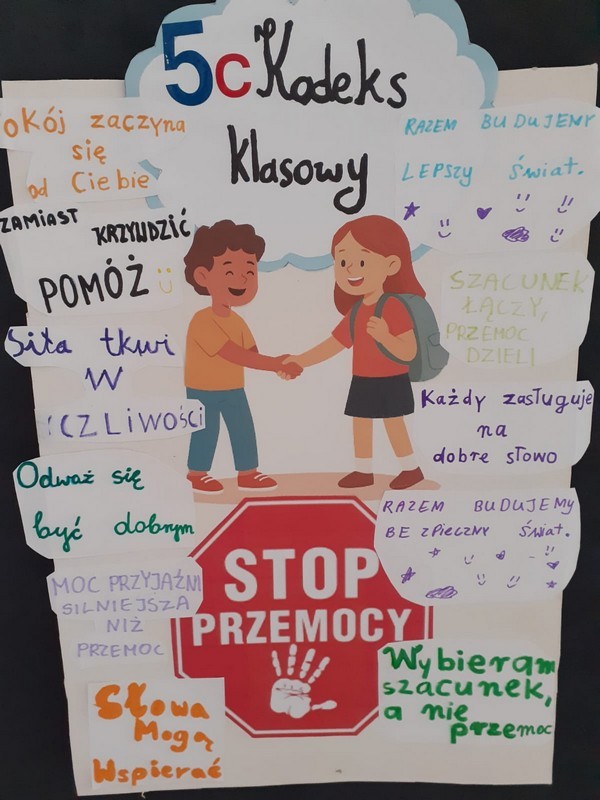 5c Kodeks
klasowy
okój zaczyna
się
od Ciebie
ZAMIAST
KRZYWDZIĆ
POMÓŻ
Siła tkwi
W
CZLIWOŚCI
Odważ się
być dobrym
MOC PRZYJAŹNI
SILNIEJSZA
NIŻ
PRZEMOC
Słowa
Mogą
Wspierać
RAZEM BUDUJEMY
LEPSZY świat.
SZACUNEK
ŁĄCZY,
PRZEMOC
DZIELI
Każdy zasługuje
na
dobre słowo
RAZEM BUDUJEMY
BEZPIECZNY świat.
STOP
PRZEMOCY
Wybieram
szacunek,
a nie
przemoc